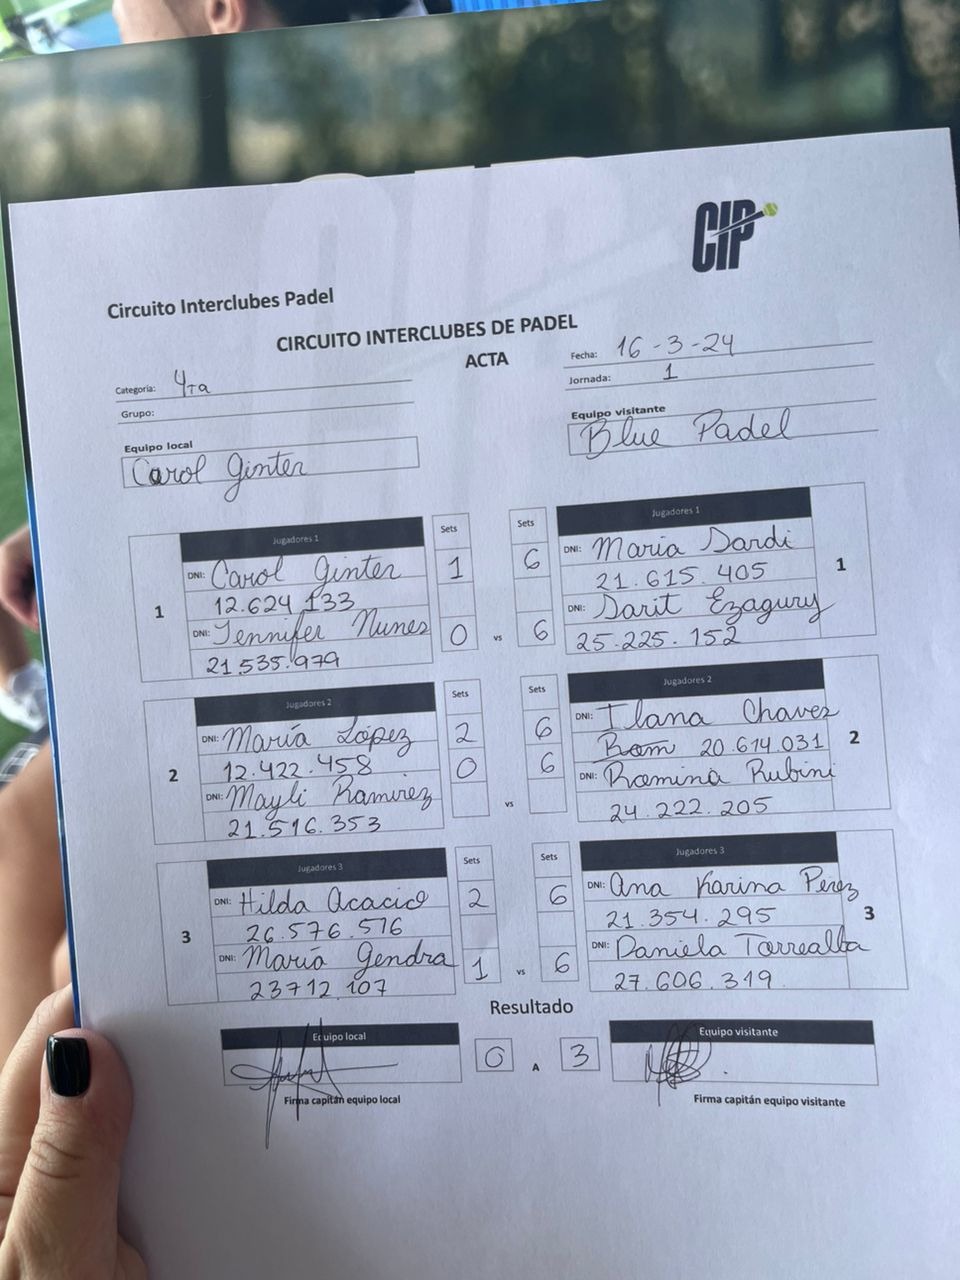 CIP
Circuito Interclubes Padel
CIRCUITO INTERCLUBES DE PADEL
ACTA
Fecha: 16-3-24
Categoría: 4Ta
Jornada: 1
Grupo:
Equipo local
Carol Ginter
Equipo visitante
Blue Padel
Jugadores 1
Sets
Sets
Jugadores 1
1
DNI: Carol Ginter
1
6
DNI: Maria Dardi
1
12.624.133
21.615.405
DNI: Jennifer Nunes
0
vs
6
DNI: Darit Ezagury
21.535.979
25.225.152
Jugadores 2
Sets
Sets
Jugadores 2
2
DNI: María López
2
6
DNI: Ilana Chavez
2
12.422.458
0
6
Rom 20.614.031
DNI: Mayli Ramirez
vs
DNI: Romina Rubini
21.516.353
24.222.205
Jugadores 3
Sets
Sets
Jugadores 3
3
DNI: Hilda Acacio
2
6
DNI: Ana Karina Pérez
3
26.576.576
21.354.295
DNI: María Gendra
1
vs
6
DNI: Daniela Torrealba
23712.107
27.606.319
Resultado
Equipo local
0
A
3
Equipo visitante
Firma capitán equipo local
Firma capitán equipo visitante